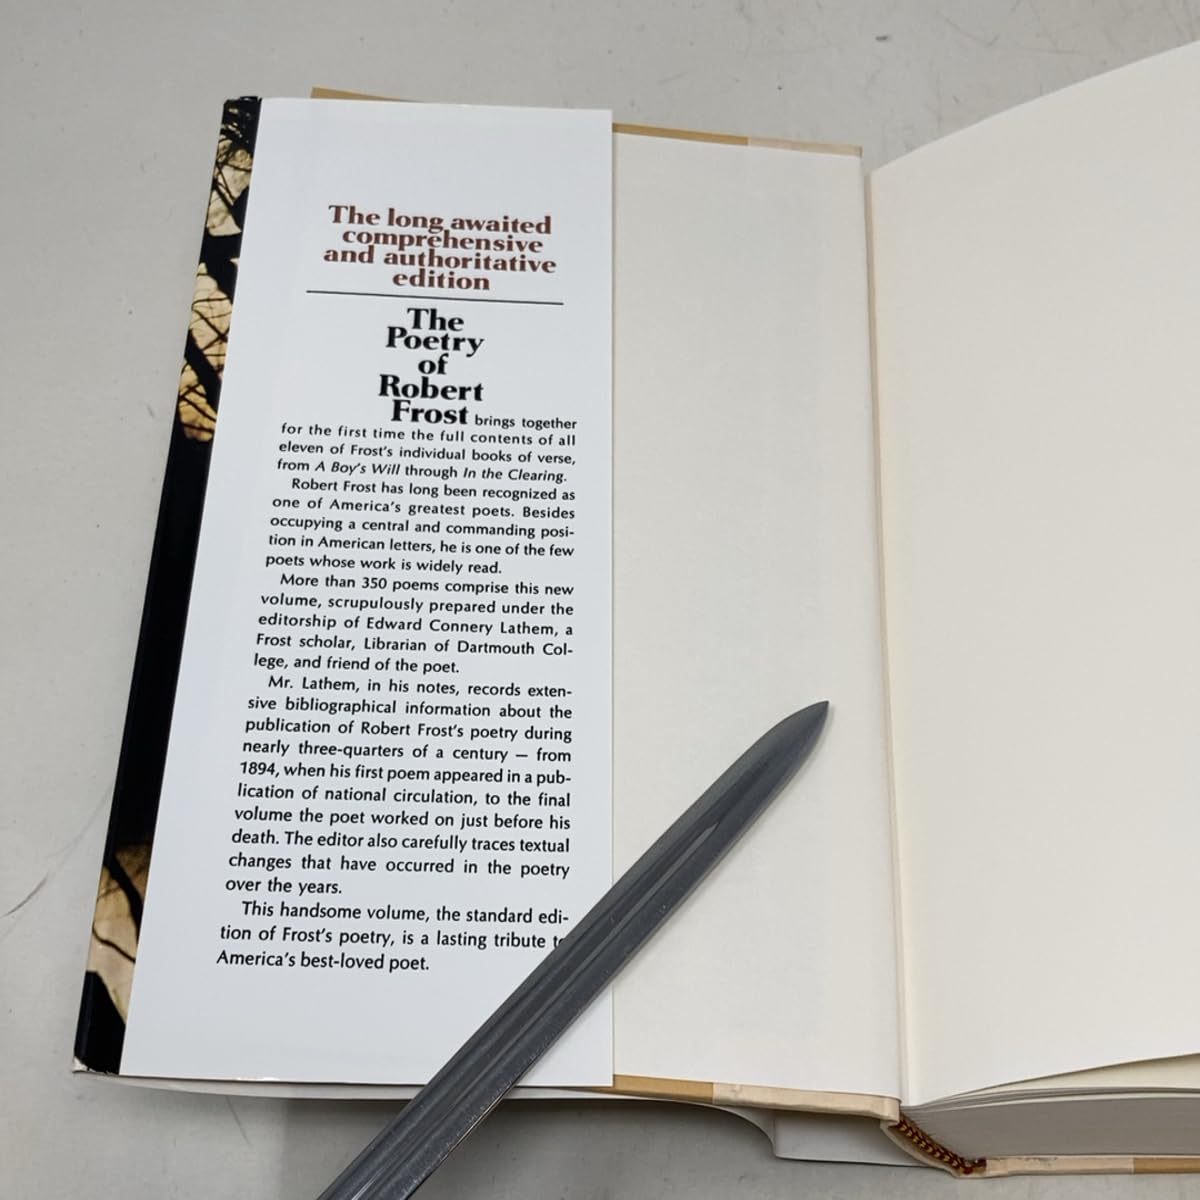 The long awaited
comprehensive
and authoritative
edition
The
Poetry
of
Robert
Frost brings together
for the first time the full contents of all
eleven of Frost's individual books of verse,
from A Boy's Will through In the Clearing.
Robert Frost has long been recognized as
one of America's greatest poets. Besides
occupying a central and commanding posi-
tion in American letters, he is one of the few
poets whose work is widely read.
More than 350 poems comprise this new
volume, scrupulously prepared under the
editorship of Edward Connery Lathem, a
Frost scholar, Librarian of Dartmouth Col-
lege, and friend of the poet.
Mr. Lathem, in his notes, records exten-
sive bibliographical information about the
publication of Robert Frost's poetry during
nearly three-quarters of a century — from
1894, when his first poem appeared in a pub-
lication of national circulation, to the final
volume the poet worked on just before his
death. The editor also carefully traces textual
changes that have occurred in the poetry
over the years.
This handsome volume, the standard edi-
tion of Frost's poetry, is a lasting tribute to
America's best-loved poet.